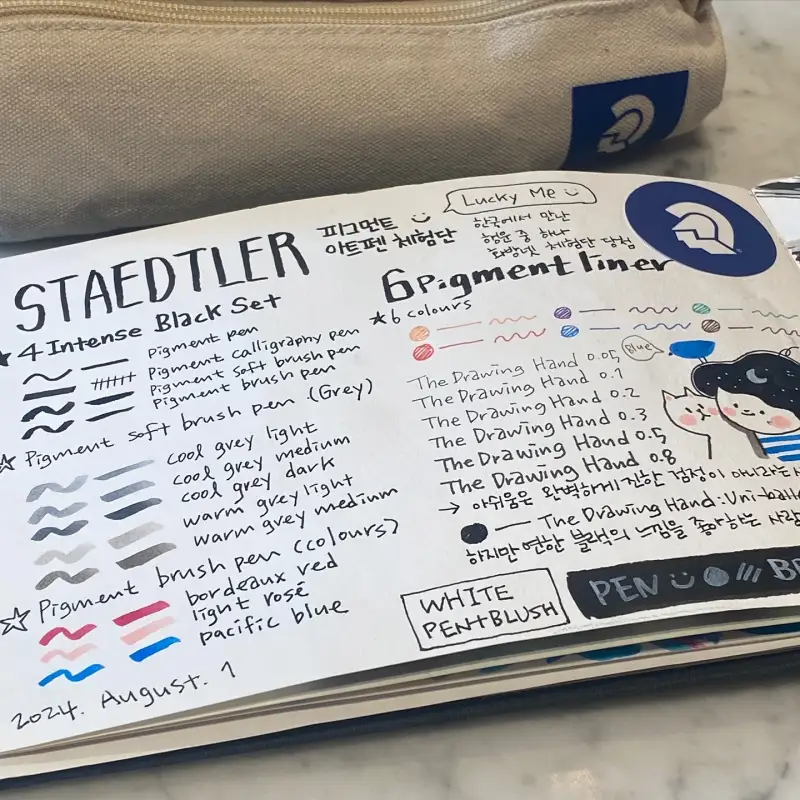 STAEDTLER
피그먼트
아트펜 체험단
Lucky Me
한국에서 만난
행운 중 하나
화방넷 체험단 당첨
★ 4 Intense Black Set
Pigment pen
Pigment calligraphy pen
Pigment soft brush pen
Pigment brush pen
☆ Pigment soft brush pen (Grey)
cool grey light
cool grey medium
cool grey dark
warm grey light
warm grey medium
☆ Pigment brush pen (colours)
bordeaux red
light rosé
pacific blue
2024. August. 1
6 Pigment liner
★ 6 colours
Blue!
The Drawing Hand 0.05
The Drawing Hand 0.1
The Drawing Hand 0.2
The Drawing Hand 0.3
The Drawing Hand 0.5
The Drawing Hand 0.8
→ 아쉬움은 완벽하게 진한 검정이 아니라는
The Drawing Hand : Uni-ball
하지만 연한 블랙의 느낌을 좋아하는 사람
WHITE
PEN+BLUSH
PEN